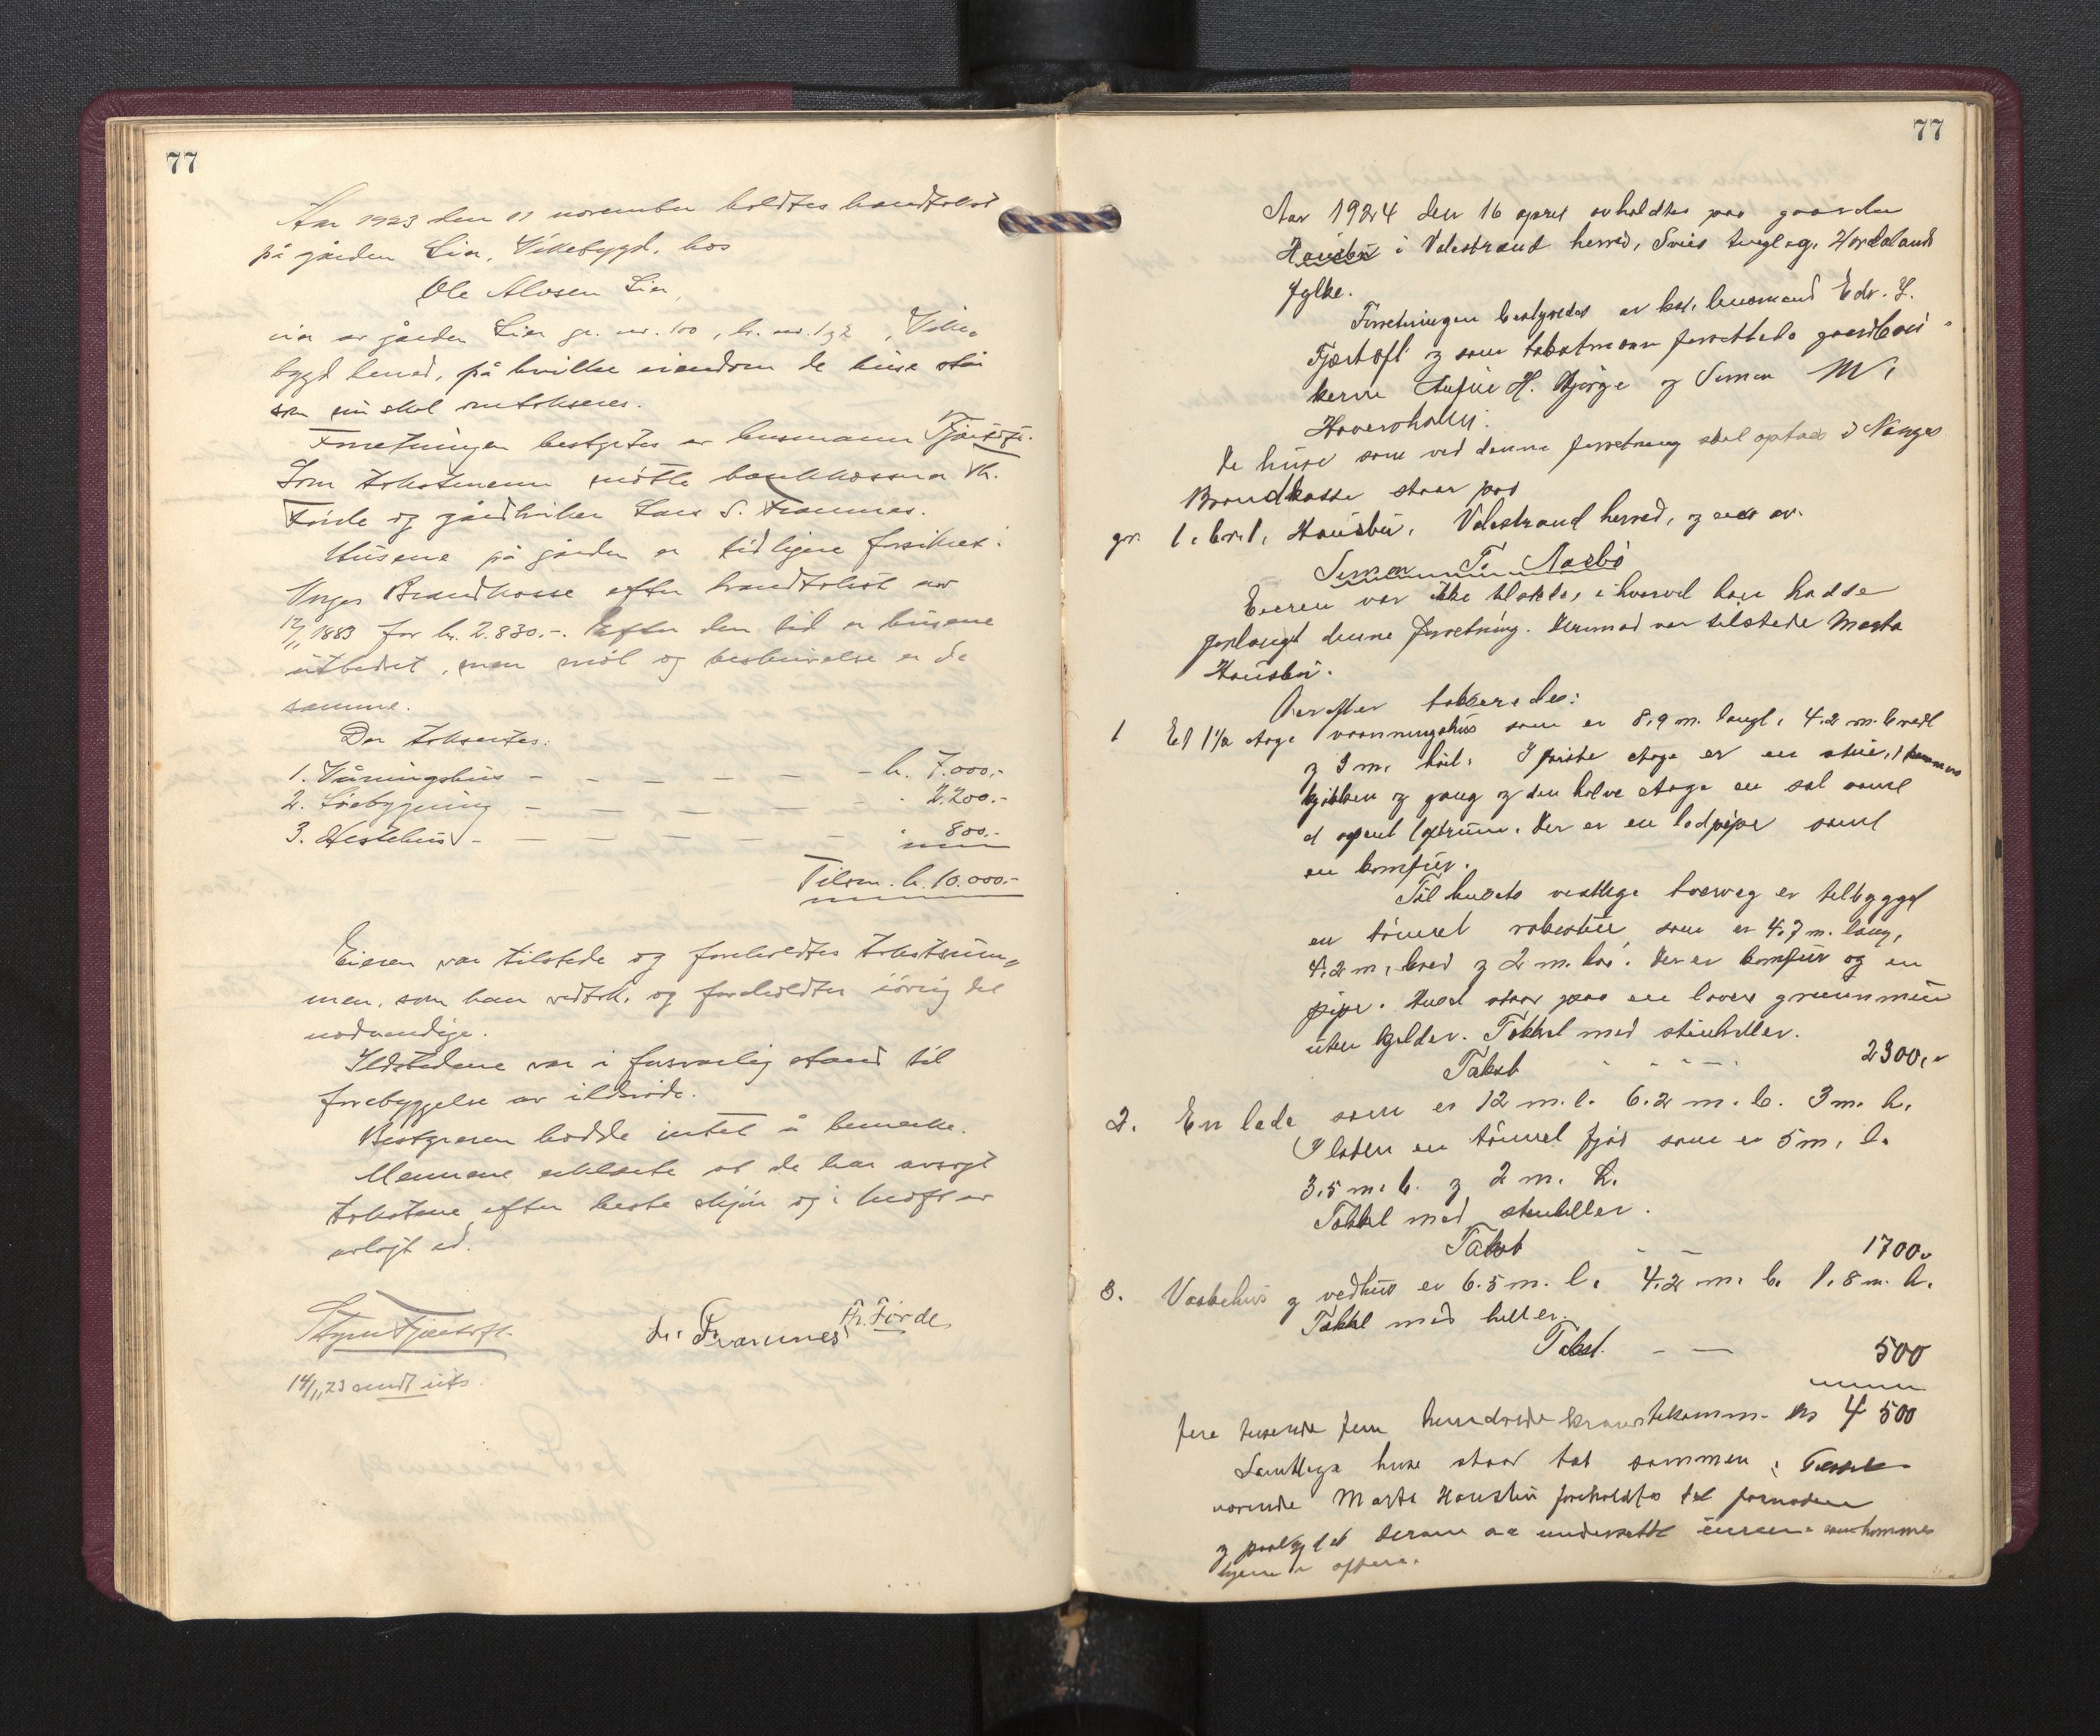 77
Aar 1923 den 11 november holdtes brandtakst
på gården Lier, Vikebygd, hos
Ole Alvsen Lier,
eier av gården Lier gr. nr. 100, br. nr. 1 og 2, Vike-
bygd herred, på hvilken eiendom de huse står
som nu skal omtakseres.
Forretningen bestyrtes av lensmann Fjærtoft.
Som takstmenn møtte bankkasserer Th.
Førde og gårdbruker Lars S. Framnes.
Husene på gården er tidligere forsikret i
Norges Brandkasse efter brandtakst av
12/11 1883 for kr. 2.830.-. Efter den tid er husene
utbedret, men mål og beskrivelse er de
samme.
Der takseertes:
1. Våningshus - - - - - - - kr. 7.000.-
2. Løebygning - - - - - - " 2.200.-
3. Hestehus - - - - - - " 800.-
Tilsm. kr. 10.000.-
Eieren var tilstede og foreholdtes takstsum-
men, som han vedtok, og foreholdtes iøvrig det
nødvendige.
Ildstedene var i forsvarlig stand til
forebyggelse av ildsvåde.
Bestyreren hadde intet å bemerke.
Mennene erklærte at de har avsagt
takstene efter beste skjøn og i kraft av
avlagt ed.
Fjærtoft.
L. Framnes Th. Førde
14/11 23 sendt uts.
77
Aar 1924 den 16 april avholdtes paa gaarden
Hausbu i Valestrand herred, Sveio tinglag, Hordaland
fylke.
Forretningen bestyredes av kst. lensmand Edv. L.
Fjærtoft og som takstmenn forrettet gaardbru-
kerne H. Bjørge og Simon M.
De huse som ved denne forretning skal optas i Norges
Brandkasse staar paa
gr. 1. br. 1. Hausbu, Valestrand herred, og eies av
Simon T. Aasbø
Eieren var ikke tilstede, ihvorvel han hadde
forlangt denne forretning. Derimod var tilstede Marta
Hausbu.
Derefter takseredes:
1 Et 1½ etage vaaningshus som er 8,9 m. langt, 4.2 m. bredt
og 3 m. høit. I første etage er en stue, 1 kammers
kjøkken og gang og den halve etage en sal samt
et aapent loftrum. Der er en lodpipe samt
en komfyr.
Til husets vestlige tverveg er tilbygget
en tømret røkstue som er 4.7 m. lang,
4.2 m. bred og 2 m. høi. Der er komfur og en
pipe. Huset staar paa en lavere grunnmur
uten kjelder. Tækket med stenheller.
Takst - - - - 2300,-
2. En lade som er 12 m. l. 6.2 m. b. 3 m. h.
I laden en tømret fjøs som er 5 m. l.
3.5 m. b. og 2 m. h.
Tækket med stenheller.
Takst - - 1700,-
3. Vaskehus og vedhus er 6.5 m. l. 4.2 m. b. 1,8 m. h.
Tækket med heller.
Takst. - - 500
fire tusende fem hundrede kroner tilsammen kr 4 500
Samtlige huse staar tæt sammen.
værende Marta Hausbu foreholdtes det fornødne
og paalagdes denne aa underrette eieren